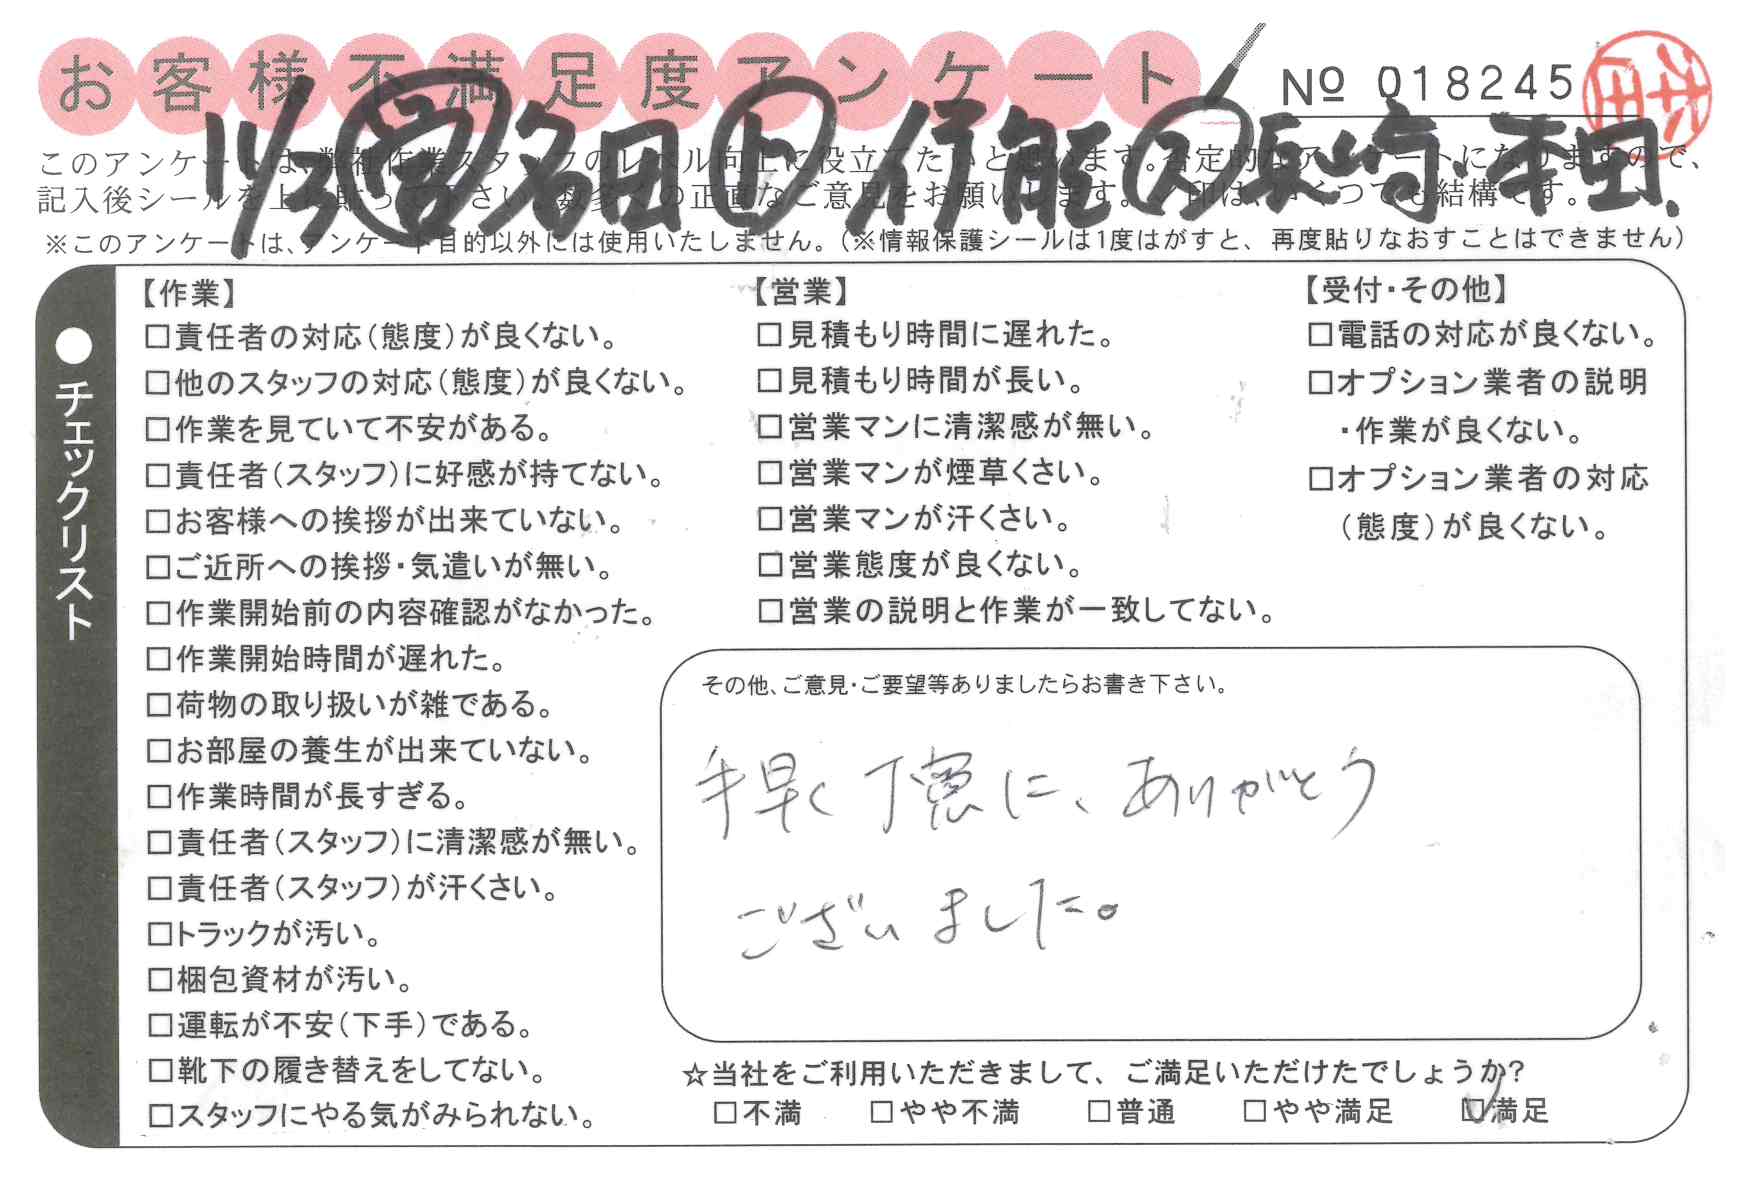 お客様不満足度アンケート
№ 018245
11/3 営 名田 ト 行能 ス 長崎・平田.
このアンケートは、弊社作業スタッフのレベル向上に役立てたいと思います。否定的なアンケートになりますので、
記入後シールを上に貼って下さい。数多くの正直なご意見をお願いします。✓印は、いくつでも結構です。
※このアンケートは、アンケート目的以外には使用いたしません。(※情報保護シールは1度はがすと、再度貼りなおすことはできません)
●チェックリスト
【作業】
□責任者の対応(態度)が良くない。
□他のスタッフの対応(態度)が良くない。
□作業を見ていて不安がある。
□責任者(スタッフ)に好感が持てない。
□お客様への挨拶が出来ていない。
□ご近所への挨拶・気遣いが無い。
□作業開始前の内容確認がなかった。
□作業開始時間が遅れた。
□荷物の取り扱いが雑である。
□お部屋の養生が出来ていない。
□作業時間が長すぎる。
□責任者(スタッフ)に清潔感が無い。
□責任者(スタッフ)が汗くさい。
□トラックが汚い。
□梱包資材が汚い。
□運転が不安(下手)である。
□靴下の履き替えをしてない。
□スタッフにやる気がみられない。
【営業】
□見積もり時間に遅れた。
□見積もり時間が長い。
□営業マンに清潔感が無い。
□営業マンが煙草くさい。
□営業マンが汗くさい。
□営業態度が良くない。
□営業の説明と作業が一致してない。
【受付・その他】
□電話の対応が良くない。
□オプション業者の説明
・作業が良くない。
□オプション業者の対応
(態度)が良くない。
その他、ご意見・ご要望等ありましたらお書き下さい。
手早く丁寧に、ありがとう
ございました。
☆当社をご利用いただきまして、ご満足いただけたでしょうか?
□不満 □やや不満 □普通 □やや満足 ☑満足